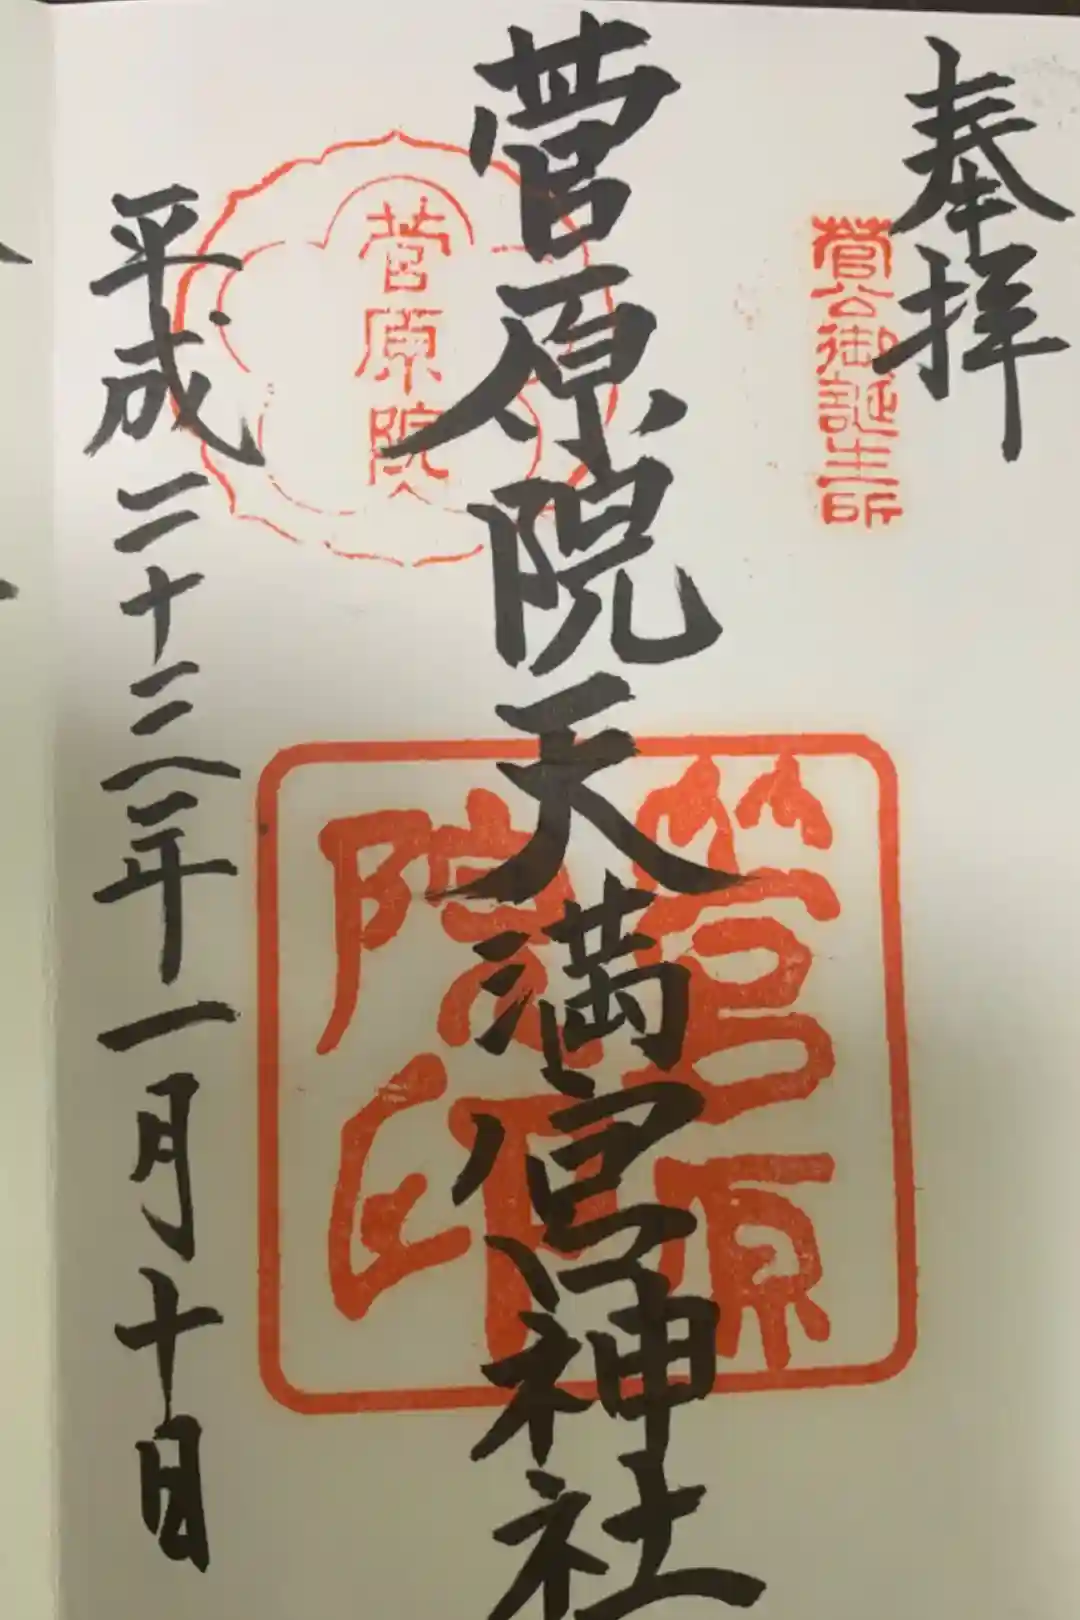 奉拝
菅公御誕生所
菅原院天満宮神社
菅原院
菅原
院印
平成二十三年一月十日